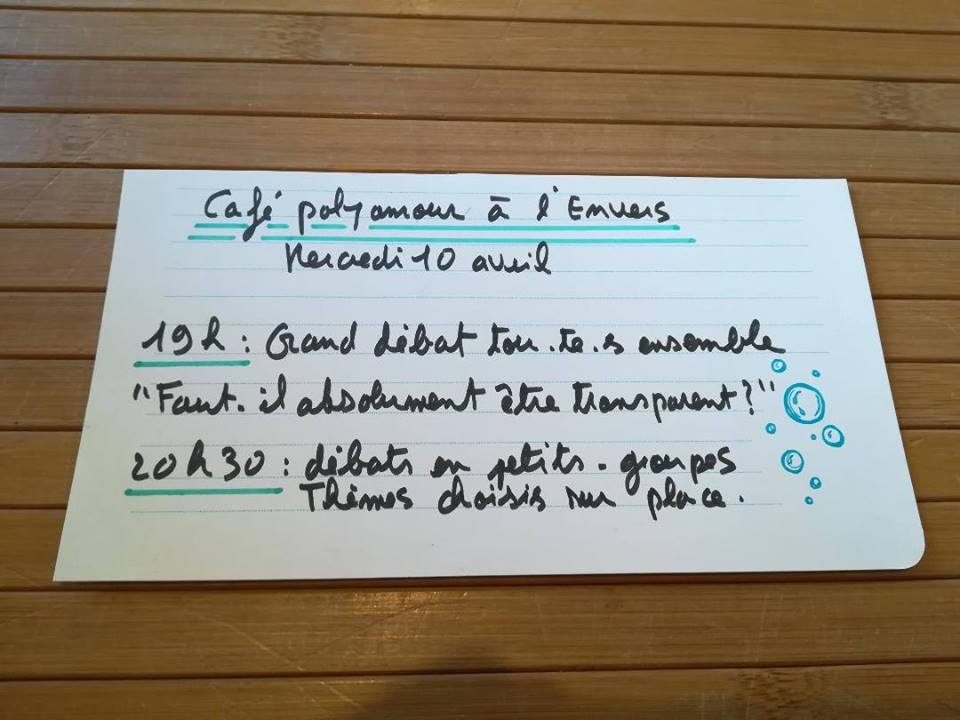 Café polyamour à l'Envers
Mercredi 10 avril
19h : Grand débat tou.te.s ensemble
"Faut-il absolument être transparent ?"
20h30 : débats en petits-groupes
Thèmes choisis sur place.